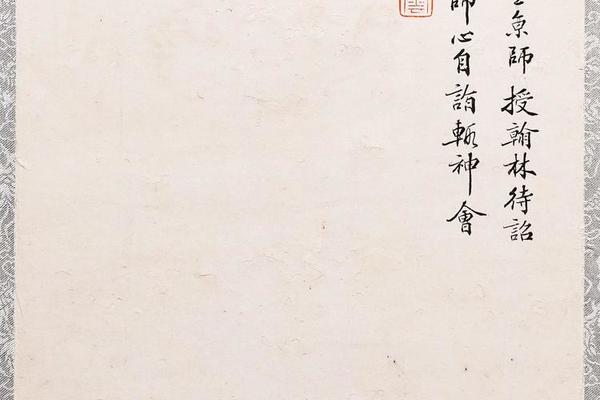 京師授翰林待詔
師心自詣輒神會